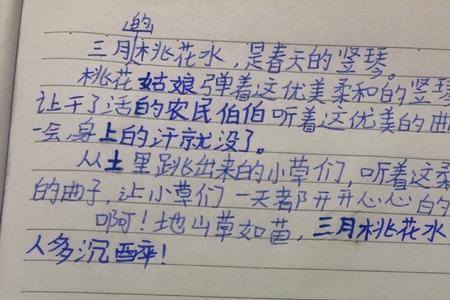 三月的桃花水，是春天的竖琴。
桃花姑娘弹着这优美柔和的竖琴
让干了活的农民伯伯听着这优美的曲
一会身上的汗就没了。
从土里跳出来的小草们，听着这柔
的曲子，让小草们一天都开开心心的
啊！地山草如苗，三月桃花水
人多沉醉！